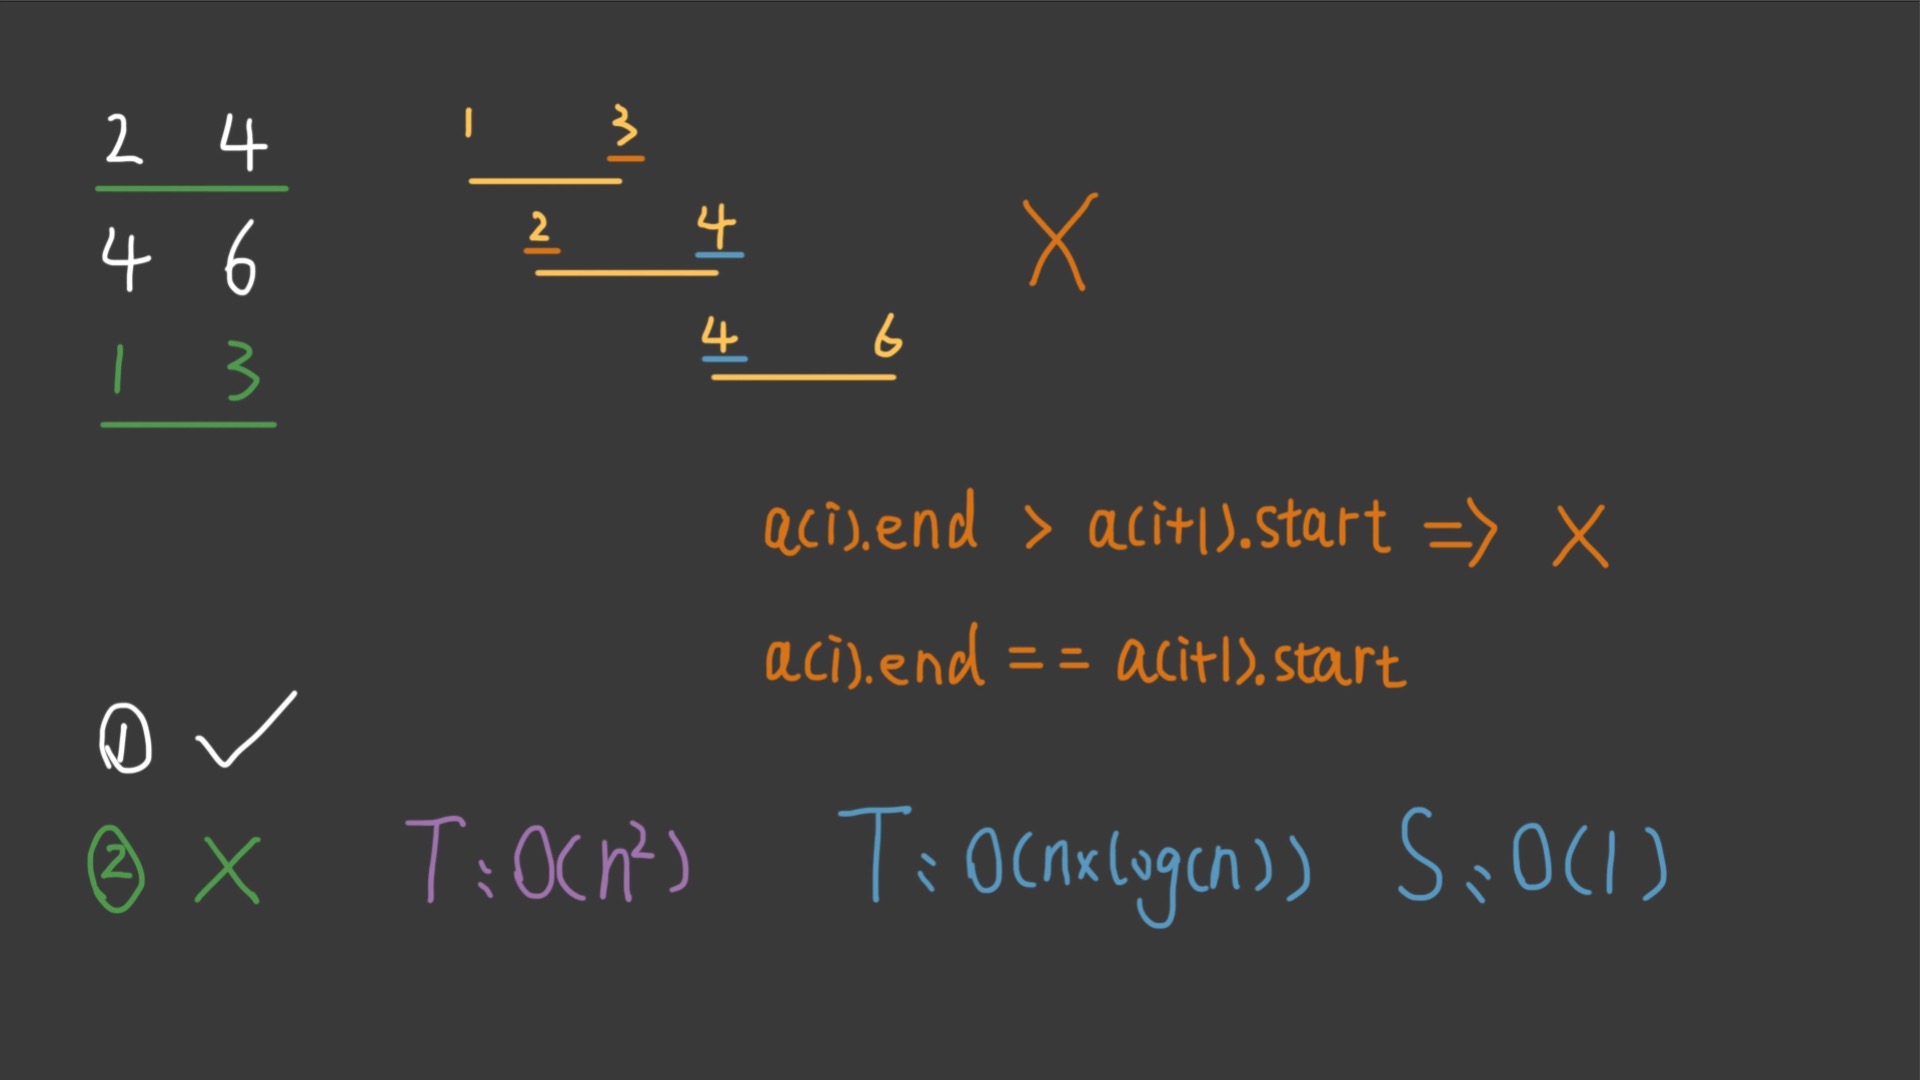 2 4
4 6
1 3
1 3
2 4
4 6
X
a(i).end > a(i+1).start => X
a(i).end == a(i+1).start
① ✓
② X T: O(n²) T: O(nxlog(n)) S: O(1)